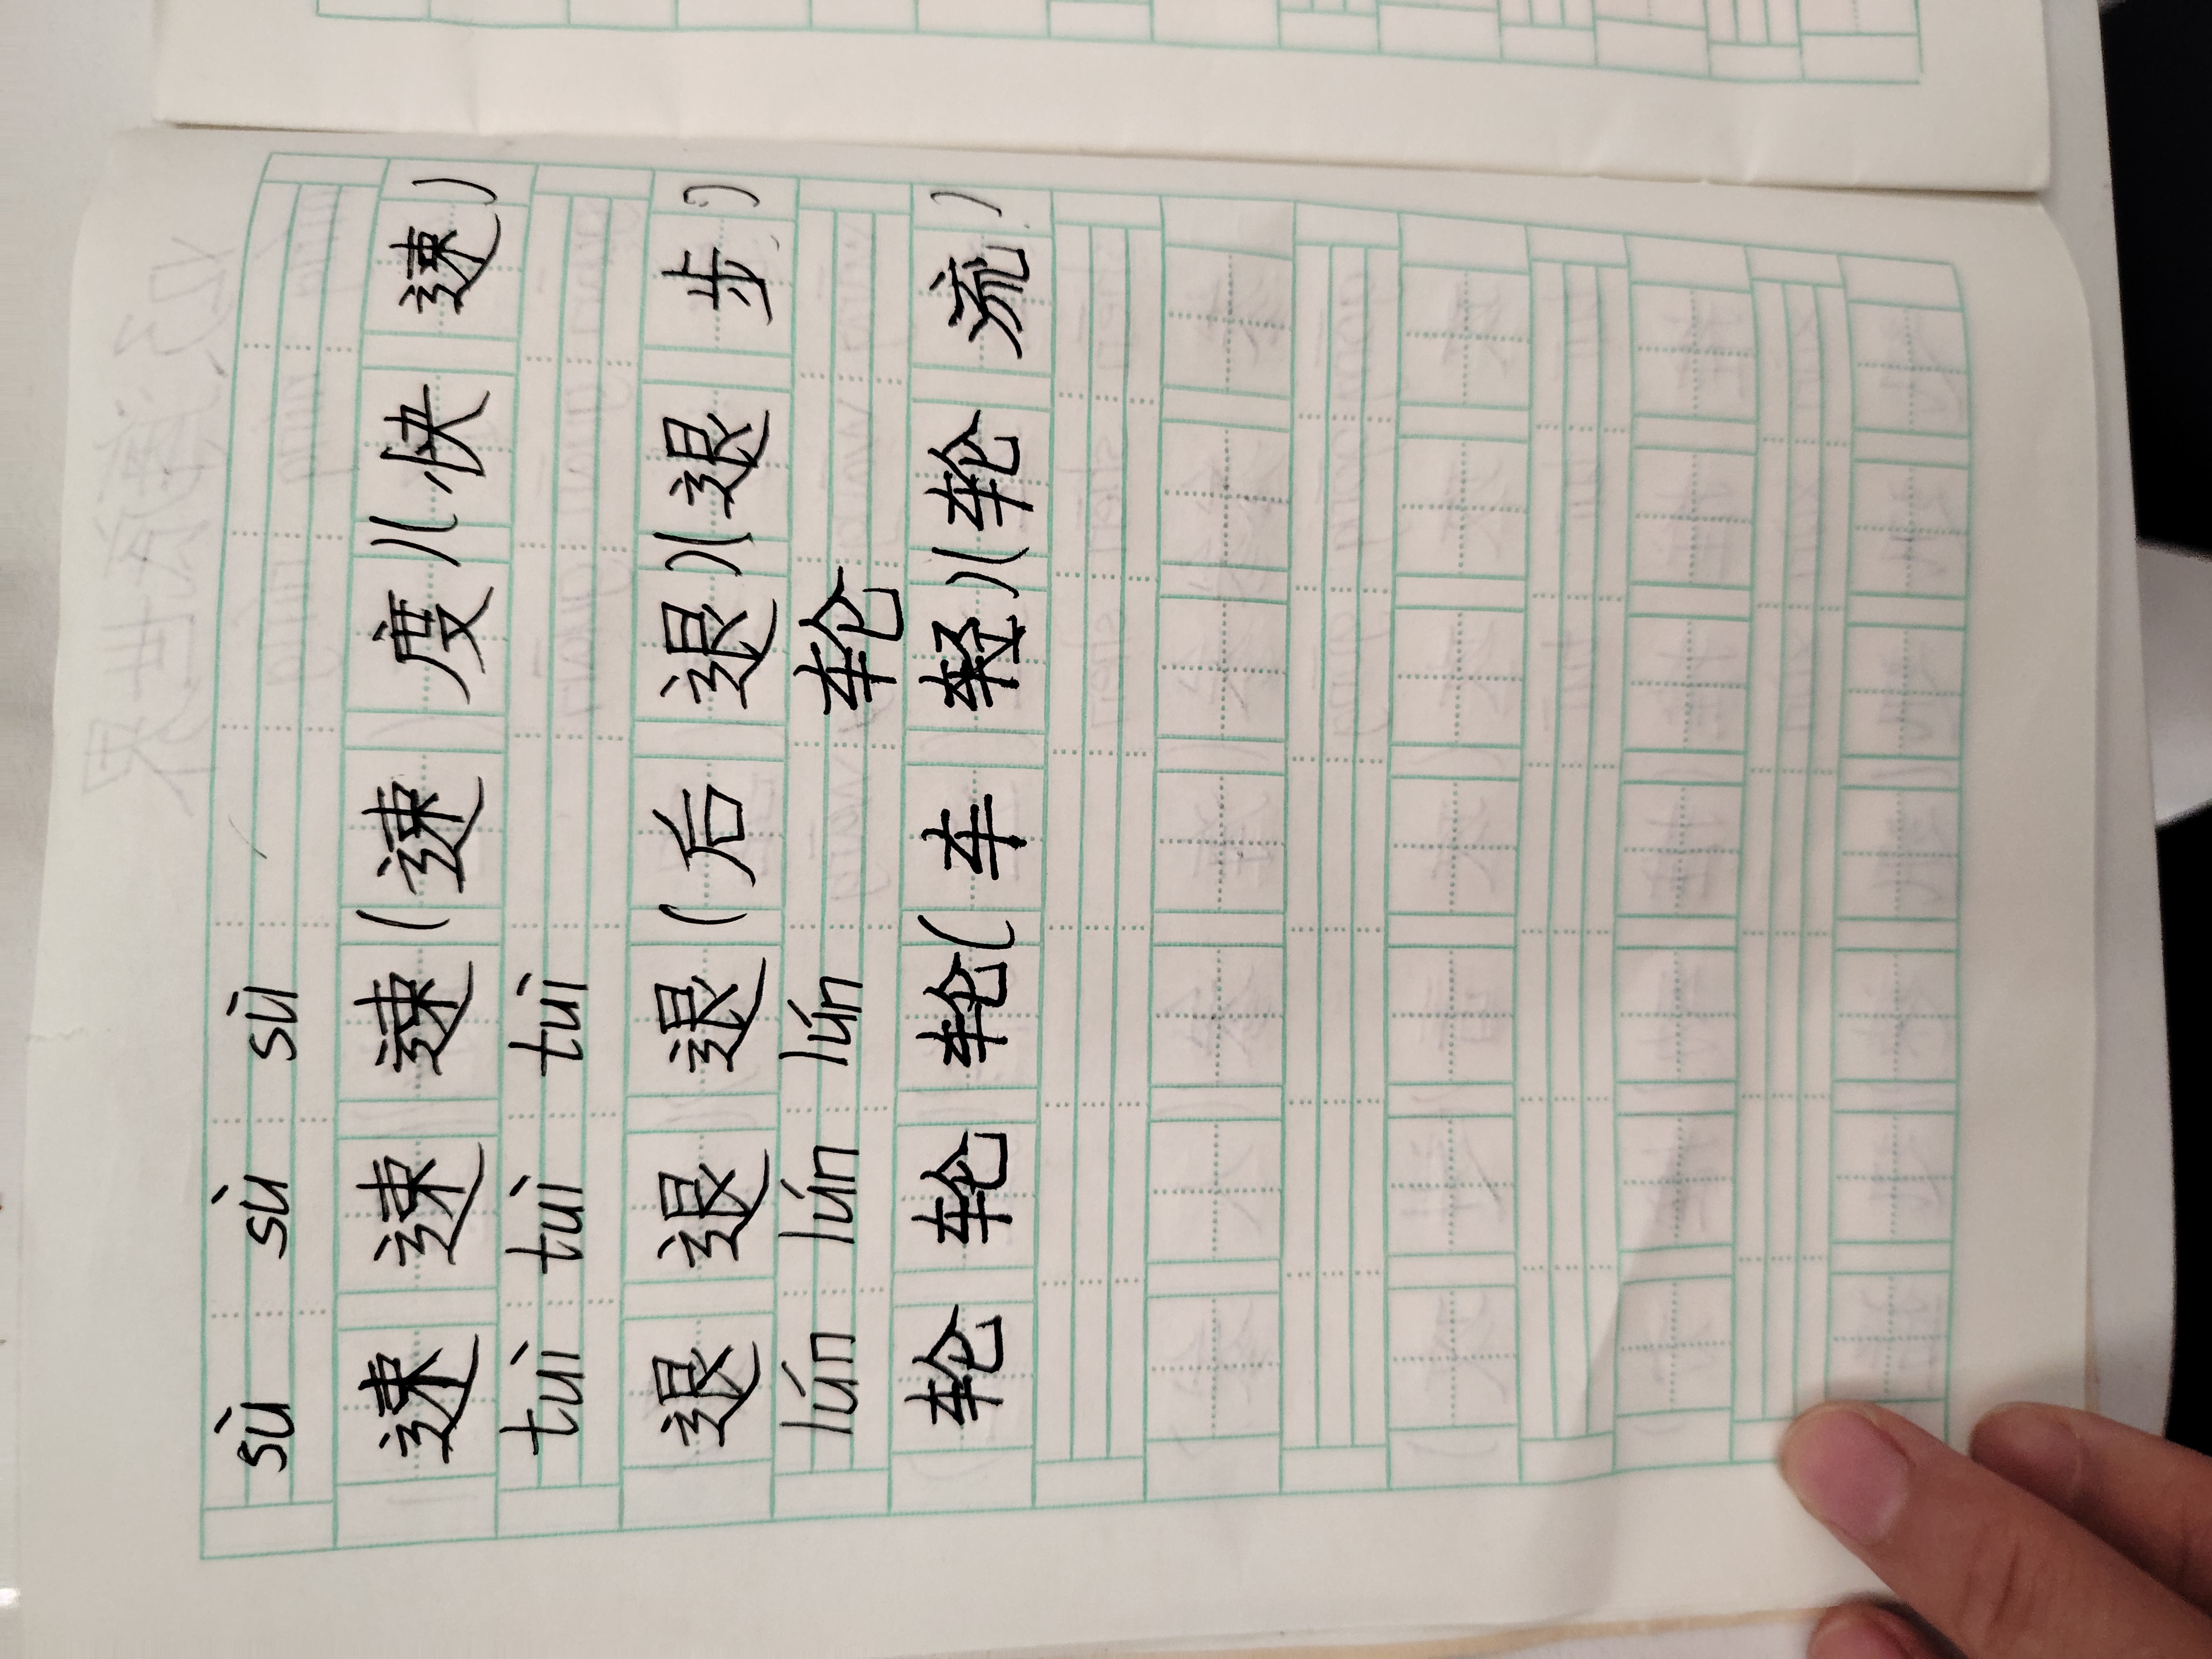 sù sù sù
速 速 速 (速 度)(快 速)
tuì tuì tuì
退 退 退 (后 退)(退 步)
lún lún lún 轮
轮 轮 轮 (车 轻)(轮 流)